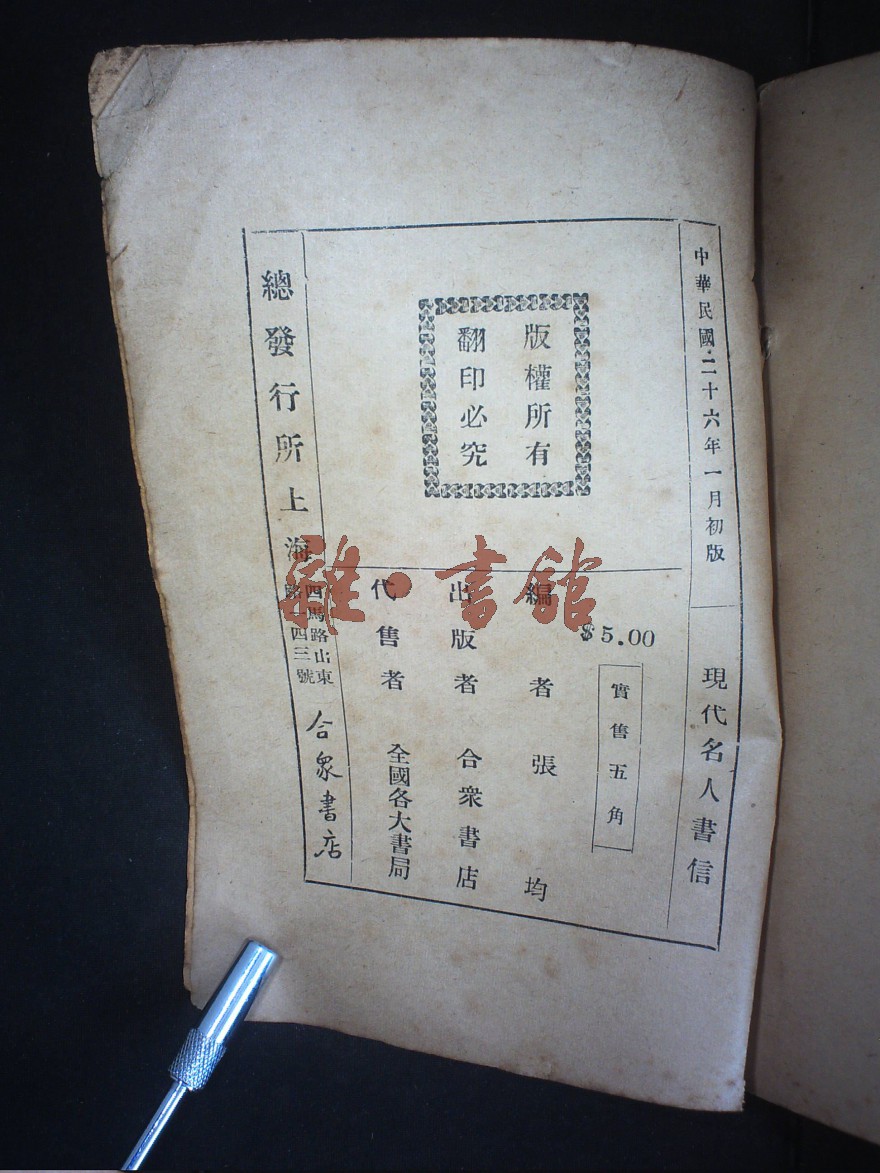 中華民國·二十六年一月初版
現代名人書信
版權所有
翻印必究
$5.00
實售五角
編者 張均
出版者 合衆書店
代售者 全國各大書局
總發行所上海
四馬路山東
路一四三號
合衆書店
雜·書館